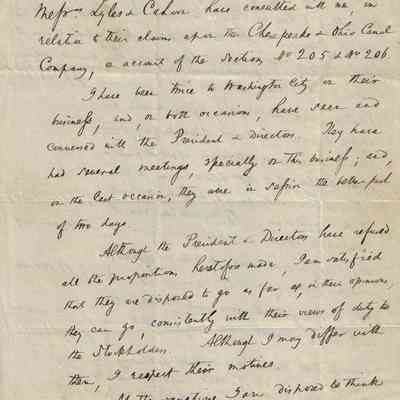 Messrs Lyles & Cahoon have consulted with me, in
relation to their claims upon the Chesapeake & Ohio Canal
Company, on account of the Sections No 205 & No 206.
I have been twice to Washington City on their
business, and, on both occasions, have seen and
conversed with the President & Directors. They have
had several meetings, specially on this business; and,
on the last occasion, they were in session the better part
of two days.
Although the President & Directors have refused
all the propositions, heretofore made, I am satisfied
that they are disposed to go as far as, in their opinions,
they can go, consistently with their views of duty to
the Stockholders. Although I may differ with
them, I respect their motives.
I am disposed to think